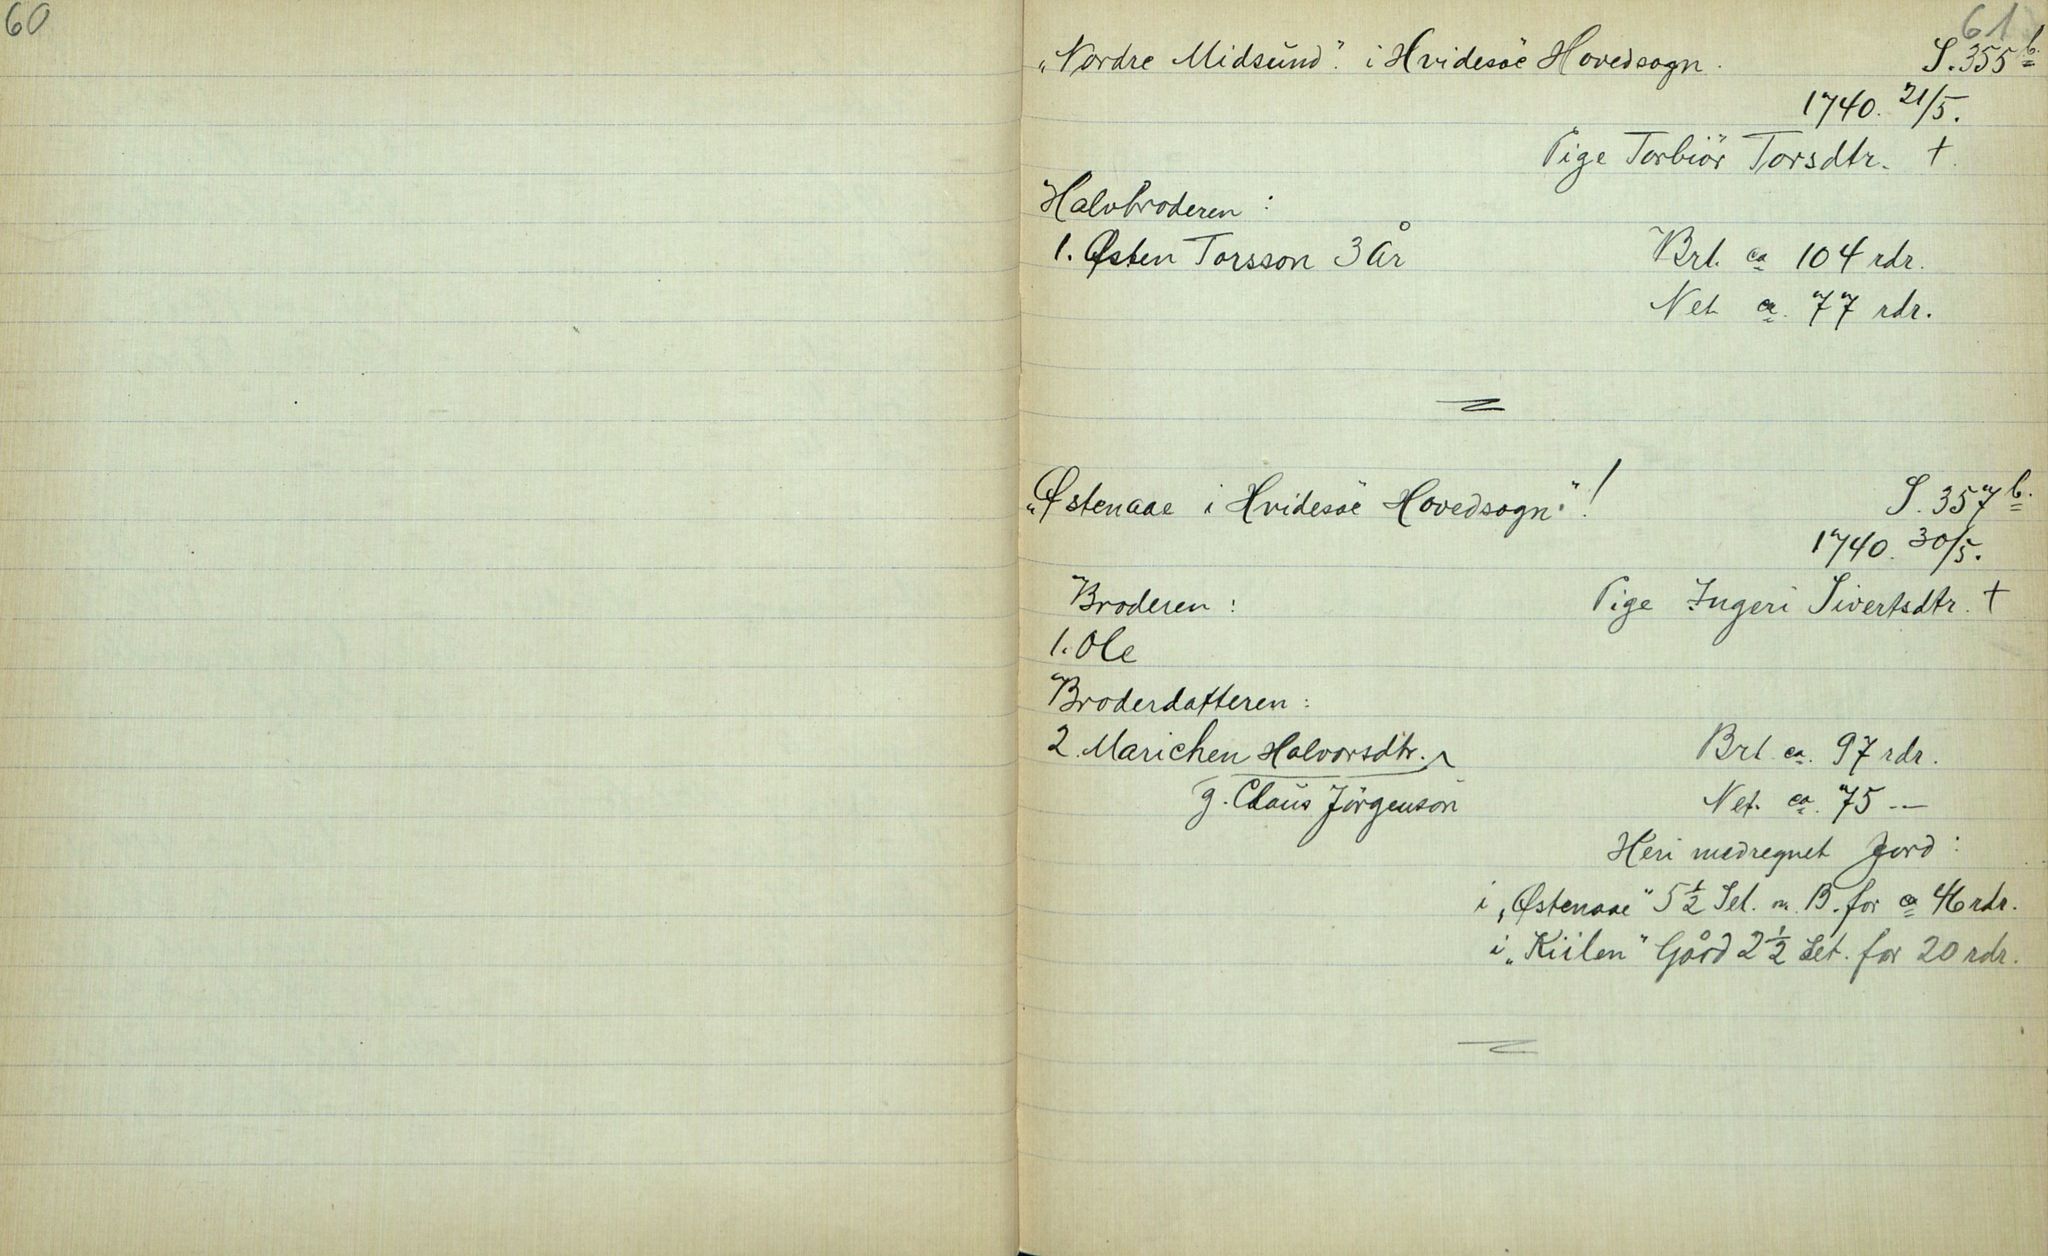 60
61
„Nordre Midsund". i Hvidesöe Hovedsogn. S. 355 b.
1740. 21/5.
Pige Torbiör Torsdtr. †.
Halvbroderen :
1. Østen Torsson 3 År Brt. ca 104 rdr.
Net ca. 77 rdr.
„Østenaae i Hvidesöe Hovedsogn." ! S. 357 b.
1740. 30/5.
Broderen : Pige Ingeri Sivertsdtr. †
1. Ole
Broderdatteren :
2. Marichen Halvorsdtr. Brt. ca. 97 rdr.
g. Claus Jörgenson Net. ca. 75 —
Heri medregnet Jord :
i „Østenaae" 5 1/2 Set. m. B. for ca 46 rdr.
i „Kiilen" Gård 2 1/2 Set. for 20 rdr.